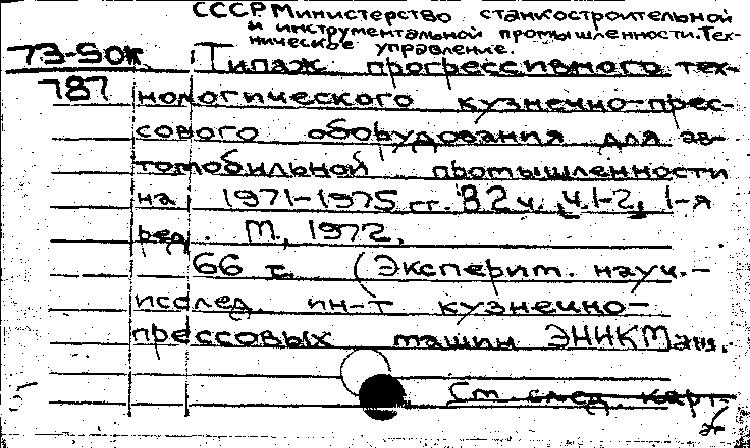 СССР. Министерство станкостроительной
и инструментальной промышленности. Тех-
ническое управление.
73-50к Типаж прогрессивного тех-
787 нологического кузнечно-прес-
сового оборудования для ав-
томобильной промышленности
на 1971-1975 гг. В 2 ч. Ч. 1-2, 1-я
ред. М., 1972.
66 с. (Эксперим. науч.-
исслед. ин-т кузнечно-
прессовых машин ЭНИКМаш.
См. след. карт.